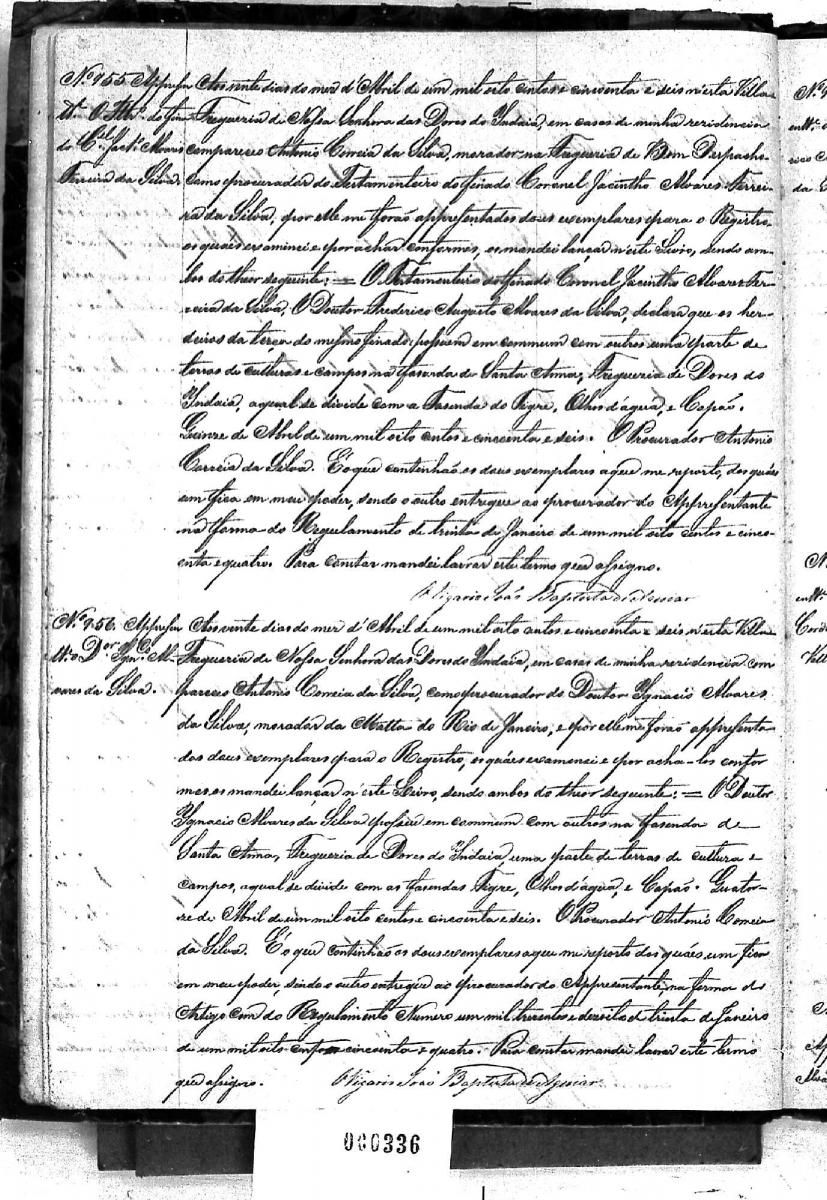 Nº 955 Appresen
te. O Test.º do fina
do C.el Jact.º Alvares
Ferreira da Silva.
Aos vinte dias do mez d'Abril de um mil oito centos e cincoenta e seis n'esta Villa
Fregueria de Nossa Senhora das Dores do Indaia, em casas de minha rezidencia
compareceo Antonio Correia da Silva, morador na Fregueria do Bom Despacho
como procurador do Testamenteiro do finado Coronel Jacintho Alvares Ferrei-
ra da Silva, por elle me forão appresentados dous exemplares para o Registro,
os quáes examinei e por achar conformes, os mandei lançar n'este Livro, sendo am-
bos do theor seguinte: = O Testamenteiro do finado Coronel Jacintho Alvares Fer-
reira da Silva, O Doutor Frederico Augusto Alvares da Silva, declara que os her-
deiros da terça do mesmo finado possuem em commum com outros uma parte de
terras de culturas e campos na fasenda de Santa Anna, Fregueria de Dores do
Indaia, a qual se divide com a Fasenda do Tigre, Olhos d'agua, e Capão.
Quinze de Abril de um mil oito centos e cincoenta e seis. O Procurador Antonio
Correia da Silva. E o que continhão os dous exemplares a que me reporto, dos quáes
um fica em meu poder, sendo o outro entregue ao procurador do Appresentante
na forma do Regulamento de trinta de Janeiro de um mil oito centos e cinco-
enta e quatro. Para constar mandei lavrar este termo que assigno.
O Vigario João Baptista de
Nº 956. Appresen
te. o D.or Ign.º Al-
vares da Silva.
Aos vinte dias do mez d'Abril de um mil oito centos e cincoenta e seis n'esta Villa
Fregueria de Nossa Senhora das Dores do Indaia, em casas de minha rezidencia com
pareceo Antonio Correia da Silva, como procurador do Doutor Ignacio Alvares
da Silva, morador da Matta do Rio de Janeiro, e por elle me forão appresenta-
dos dous exemplares para o Registro, os quáes examinei e por acha-los confor
mes os mandei lançar n'este Livro, sendo ambos do theor seguinte: = O Doutor
Ignacio Alvares da Silva possue em commum com outros na fasenda de
Santa Anna, Fregueria de Dores do Indaia, uma parte de terras de cultura e
campos, a qual se divide com as fasendas Tigre, Olhos d'agua, e Capão. Quator-
ze de Abril de um mil oito centos e cincoenta e seis. O Procurador Antonio Correia
da Silva. E o que continhão os dous exemplares a que me reporto dos quáes, um fica
em meu poder, sendo o outro entregue ao procurador do Appresentante, na forma do
Artigo cem do Regulamento Numero um mil trezentos e dezoito de trinta de Janeiro
de um mil oito centos e cincoenta e quatro. Para constar mandei lavrar este termo
que assigno. O Vigario João Baptista de
000336